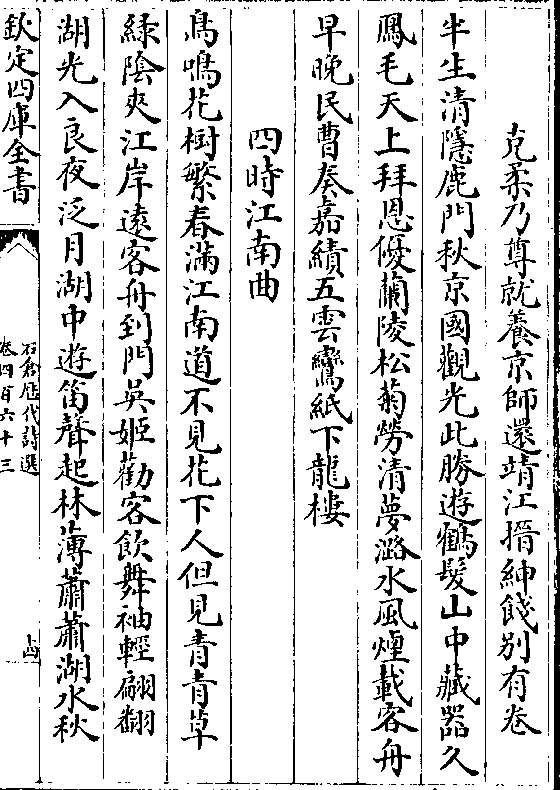 克柔乃尊就養京師還靖江搢紳餞别有卷
半生清隱鹿門秋京國觀光此勝遊鶴髮山中藏器久
鳳毛天上拜恩優蘭陵松菊勞清夢潞水風煙載客舟
早晚民曹奏嘉績五雲鸞紙下龍樓
四時江南曲
鳥鳴花樹繁春滿江南道不見花下人但見青青草
緑陰夾江岸遠客舟到門吳姬勸客飲舞袖輕翩翻
湖光入良夜泛月湖中遊笛聲起林薄蕭蕭湖水秋
欽定四庫全書
石倉歴代詩選
卷四百六十三